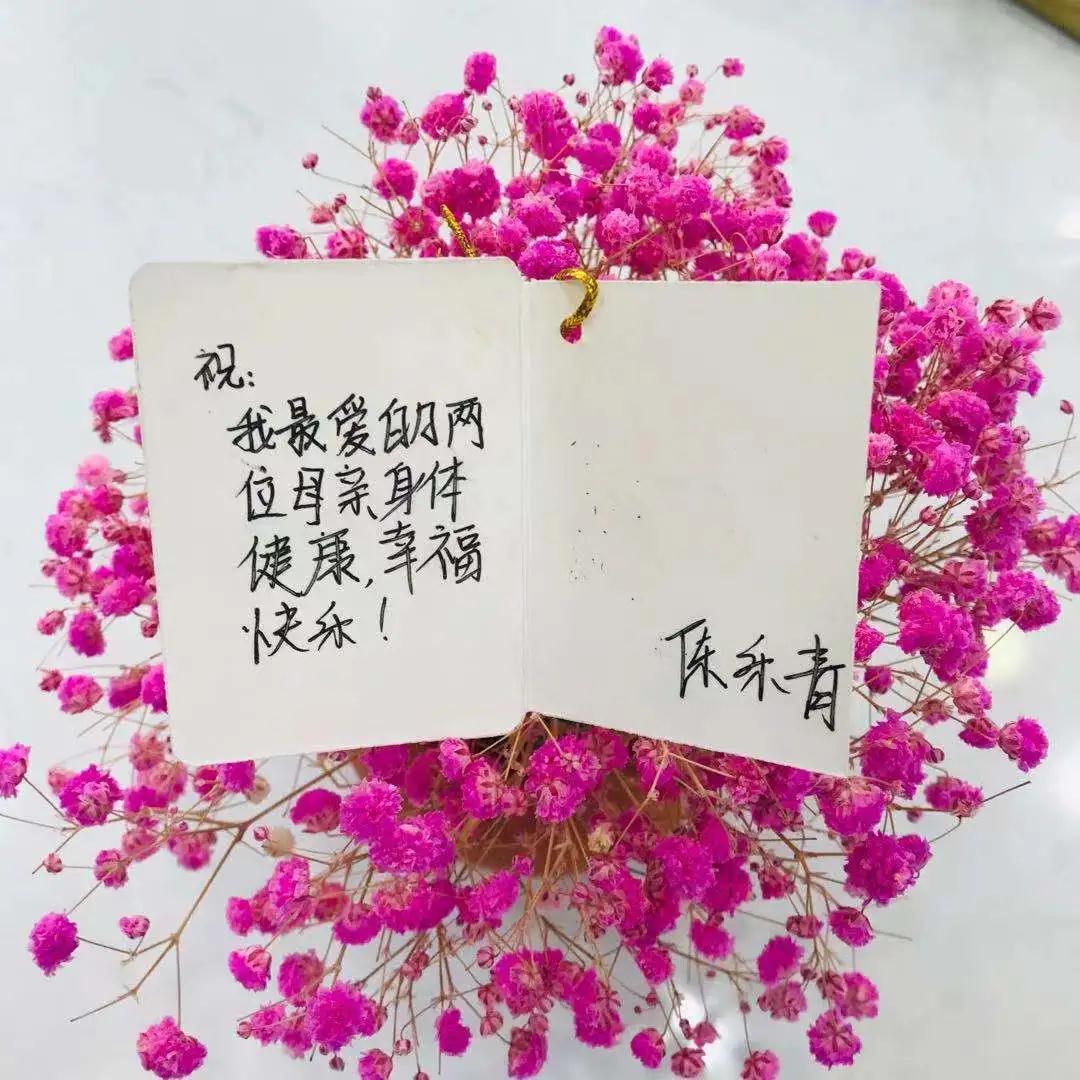 祝:
我最爱的两
位母亲身体
健康,幸福
快乐!
陈乐青